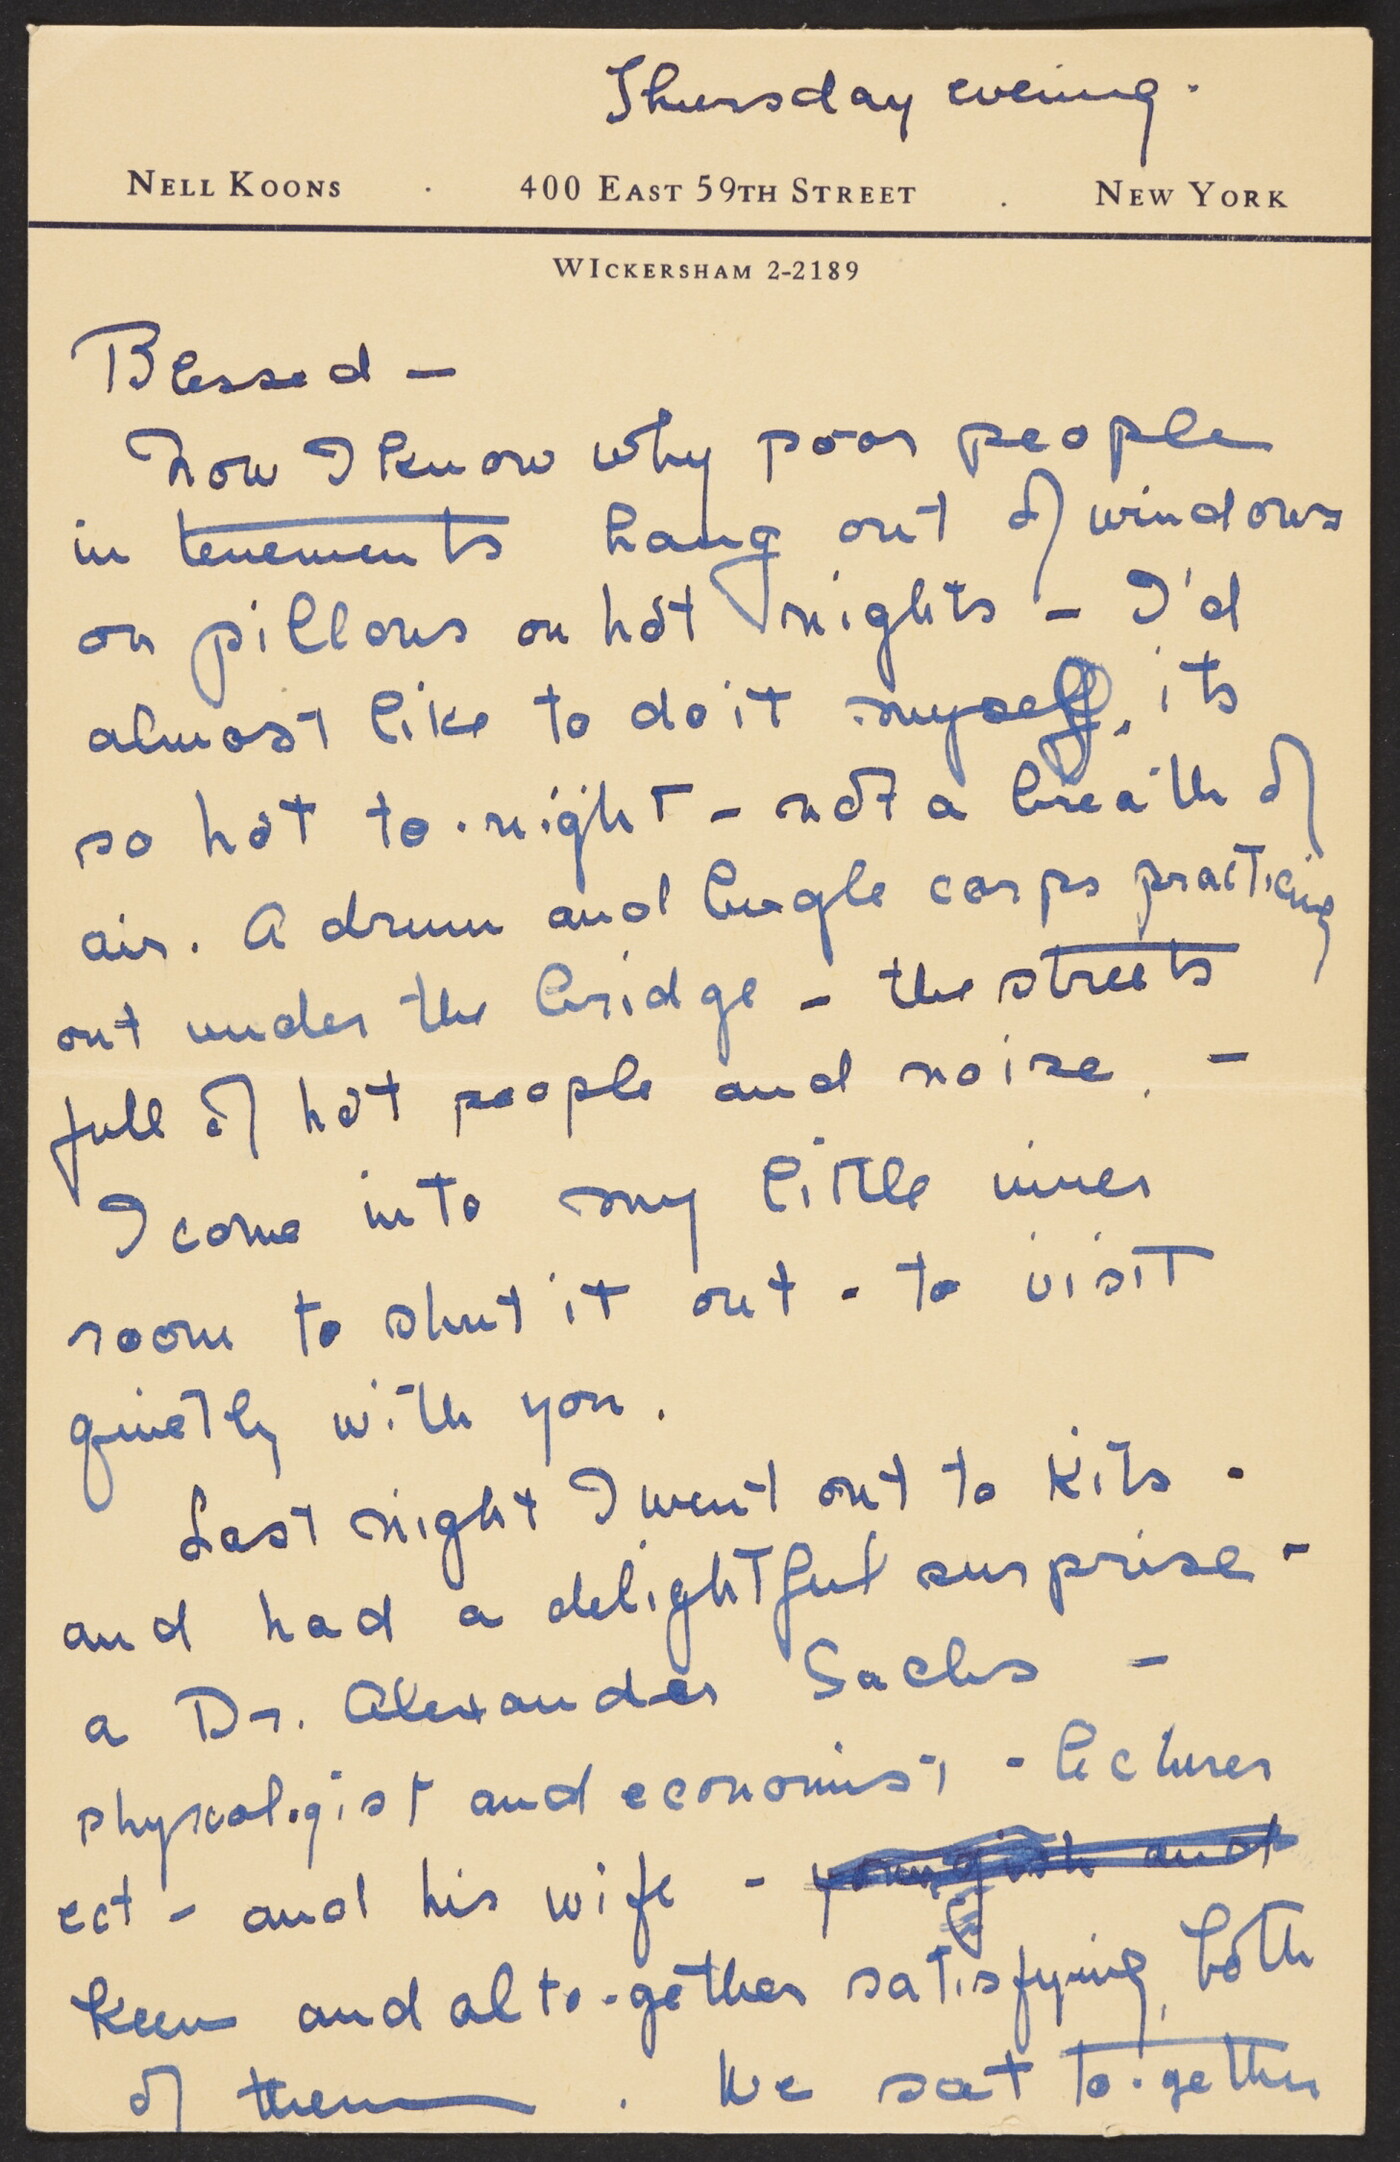 Thursday evening.
NELL KOONS · 400 EAST 59TH STREET · NEW YORK
WICKERSHAM 2-2189
Blessed —
Now I know why poor people
in tenements hang out of windows
on pillows on hot nights – I'd
almost like to do it myself, its
so hot to-night – not a breath of
air. A drum and bugle corps practicing
out under the bridge – the streets
full of hot people and noise. –
I come into my little inner
room to shut it out - to visit
quietly with you.
Last night I went out to Kits -
and had a delightful surprise -
a Dr. Alexander Sachs –
physcologist and economist - lecturer
ect - and his wife - youngish and
keen and alto-gether satisfying, both
of them. We sat to-gether